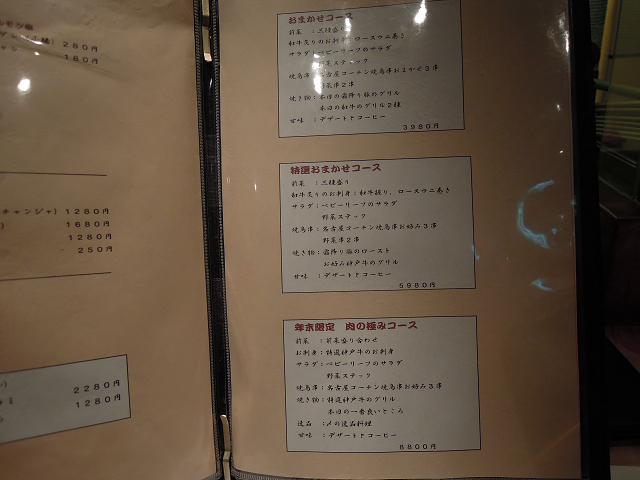 280円
180円
チャンジャ) 1280円
1680円
1280円
250円
2280円
1280円
おまかせコース
前菜 :三種盛り
和牛炙りのお刺身:ロースウニ巻き
サラダ:ベビーリーフのサラダ
野菜スティック
焼鳥串:名古屋コーチン焼鳥串おまかせ3串
野菜串2串
焼き物:本日の霜降り豚のグリル
本日の和牛のグリル2種
甘味 :デザートとコーヒー
3980円
特選おまかせコース
前菜 :三種盛り
和牛炙りのお刺身:和牛握り、ロースウニ巻き
サラダ:ベビーリーフのサラダ
野菜スティック
焼鳥串:名古屋コーチン焼鳥串お好み3串
野菜串2串
焼き物:霜降り豚のロースト
お好み神戸牛のグリル
甘味 :デザートとコーヒー
5980円
年末限定 肉の極みコース
前菜 :前菜盛り合わせ
お刺身:特選神戸牛のお刺身
サラダ:ベビーリーフのサラダ
野菜スティック
焼鳥串:名古屋コーチン焼鳥串お好み3串
焼き物:特選神戸牛のグリル
本日の一番良いところ
逸品 :〆の逸品料理
甘味 :デザートとコーヒー
8800円